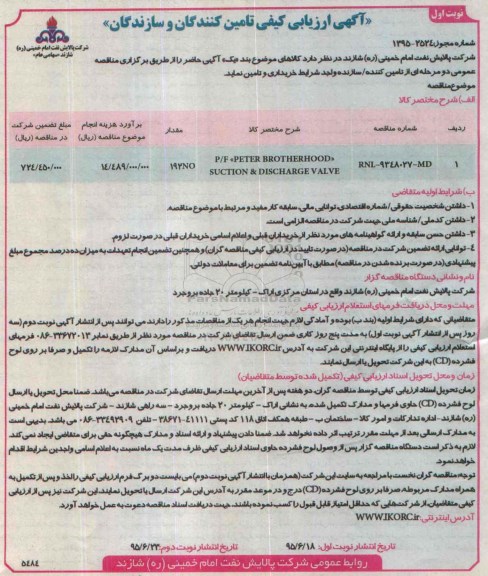 نوبت اول
«آگهی ارزیابی کیفی تامین کنندگان و سازندگان»
شرکت پالایش نفت امام خمینی (ره)
شازند «سهامی عام»
شماره مجوز: ۱۳۹۵-۲۵۲۴
شرکت پالایش نفت امام خمینی (ره) شازند در نظر دارد کالاهای موضوع بند «یک» آگهی حاضر را از طریق برگزاری مناقصه
عمومی دو مرحله ای از تامین کننده / سازنده واجد شرایط خریداری و تامین نماید.
موضوع مناقصه
الف) شرح مختصر کالا
ردیف شماره مناقصه شرح مختصر کالا مقدار برآورد هزینه انجام موضوع مناقصه (ریال) مبلغ تضمین شرکت در مناقصه (ریال)
۱ RNL-9348027-MD P/F «PETER BROTHERHOOD» SUCTION & DISCHARGE VALVE ۱۹۲NO ۱۴/۴۸۹/۰۰۰/۰۰۰ ۷۲۴/۴۵۰/۰۰۰
ب) شرایط اولیه متقاضی
۱- داشتن شخصیت حقوقی / شماره اقتصادی، توانایی مالی، سابقه کار مفید و مرتبط با موضوع مناقصه.
۲- داشتن کد ملی / شناسه ملی جهت شرکت در مناقصه الزامی است.
۳- داشتن حسن سابقه و ارائه گواهینامه های مورد نظر از خریداران قبلی و اعلام اسامی خریداران قبلی در صورت لزوم.
۴- توانایی ارائه تضمین شرکت در مناقصه (در صورت تایید در ارزیابی کیفی مناقصه گران) و همچنین تضمین انجام تعهدات به میزان ده درصد مجموع مبلغ
پیشنهادی (در صورت برنده شدن در مناقصه) مطابق با آیین نامه تضمین برای معاملات دولتی.
نام و نشانی دستگاه مناقصه گزار
شرکت پالایش نفت امام خمینی (ره) شازند واقع در استان مرکزی اراک - کیلومتر ۲۰ جاده بروجرد
مهلت و محل دریافت فرمهای استعلام ارزیابی کیفی
متقاضیانی که دارای شرایط اولیه (بند ب) بوده و آمادگی لازم جهت انجام هر یک از مناقصات مذکور را دارند می توانند پس از انتشار آگهی نوبت دوم (سه
روز پس از انتشار آگهی نوبت اول) به مدت پنج روز کاری ضمن ارسال تقاضای شرکت در مناقصه مورد نظر از طریق نمابر ۳۳۶۷۲۰۱۳-۰۸۶ فرمهای
استعلام ارزیابی کیفی را از پایگاه اینترنتی این شرکت به آدرس WWW.IKORC.ir دریافت و براساس آن مدارک لازمه را تکمیل و صرفا بر روی لوح
فشرده (CD) به این شرکت تحویل یا ارسال نمایند.
زمان و محل تحویل اسناد ارزیابی کیفی (تکمیل شده توسط متقاضیان)
زمان تحویل اسناد ارزیابی کیفی توسط مناقصه گران، دو هفته پس از آخرین مهلت ارسال تقاضای شرکت در مناقصه می باشد. ضمنا محل تحویل یا ارسال
لوح فشرده (CD) حاوی فرمها و مدارک تکمیل شده، به نشانی اراک - کیلومتر ۲۰ جاده بروجرد - سه راهی شازند - شرکت پالایش نفت امام خمینی
(ره) شازند - اداره تدارکات و امور کالا - ساختمان ب - طبقه همکف اتاق ۱۱۸ کد پستی ۴۱۱۱۱-۳۸۶۷۱ - تلفن ۳۳۴۹۲۹۰۹-۰۸۶ می باشد. بدیهی است
به مدارک ارسالی بعد از مهلت مقرر ترتیب اثر داده نخواهد شد. ضمنا دادن پیشنهاد و ارائه اسناد و مدارک هیچگونه حقی برای متقاضی ایجاد نمی کند.
لازم به ذکر است دستگاه مناقصه گزار پس از وصول لوح فشرده حاوی اسناد ارزیابی کیفی ظرف مدت یک ماه نسبت به اعلام اسامی واجدین شرایط اقدام
خواهد نمود.
توجه: مناقصه گران نخست با مراجعه به سایت این شرکت (همزمان با انتشار آگهی نوبت دوم) می بایست دو برگ فرم ارزیابی کیفی را اخذ و پس از تکمیل به
همراه مدارک مربوطه، صرفا بر روی لوح فشرده (CD) درج و در موعد مقرر به آدرس این شرکت ارسال یا تحویل نمایند. این شرکت نیز پس از ارزیابی
کیفی متقاضیان، از شرکت هایی که حداقل امتیاز قابل قبول را کسب نموده باشند، جهت دریافت اسناد مناقصه دعوت به عمل خواهد آورد.
آدرس اینترنتی: WWW.IKORC.ir
تاریخ انتشار نوبت اول: ۹۵/۶/۱۸ تاریخ انتشار نوبت دوم: ۹۵/۶/۲۳
روابط عمومی شرکت پالایش نفت امام خمینی (ره) شازند
۵۴۸۴
ParsNamadData